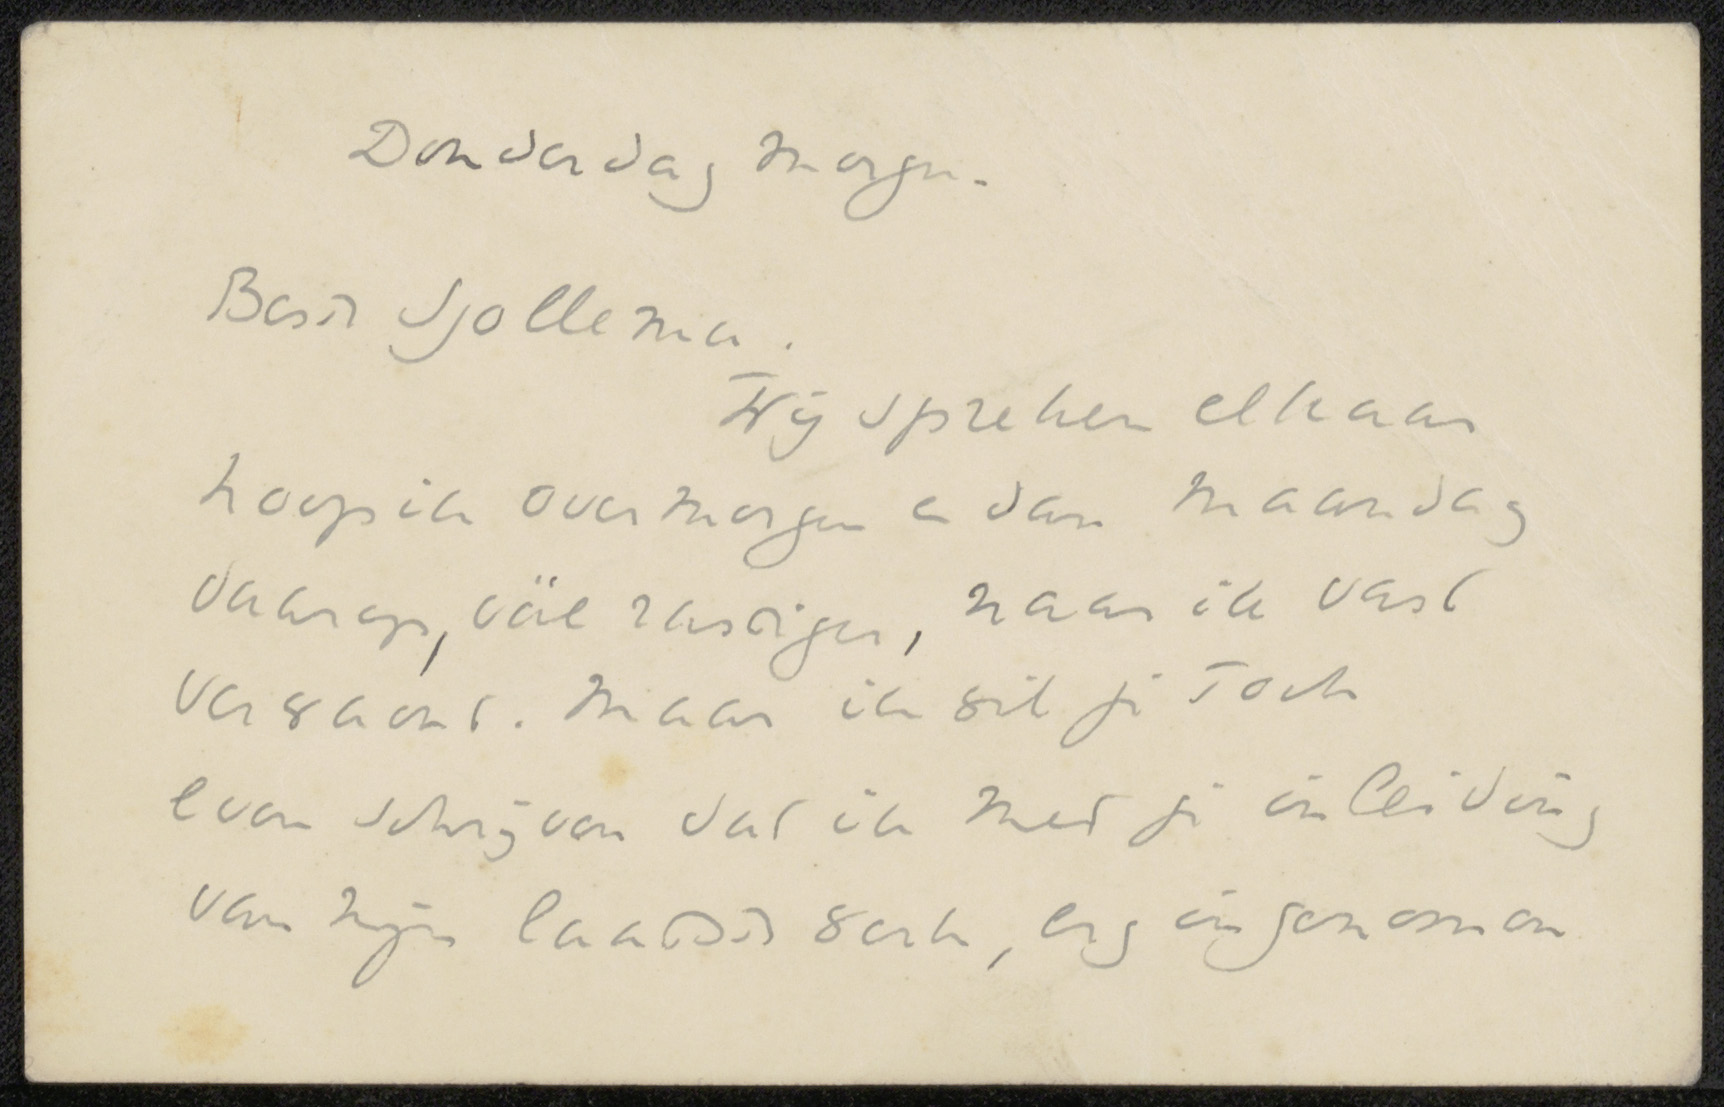 Donderdag morgen.
Beste Sjollema.
Wij spreken elkaar
hoop ik overmorgen en dan maandag
daarop, veel rustiger, naar ik vast
vertrouw. Maar ik wil je toch
even schrijven dat ik met je inleiding
van mijn laatste werk, erg ingenomen